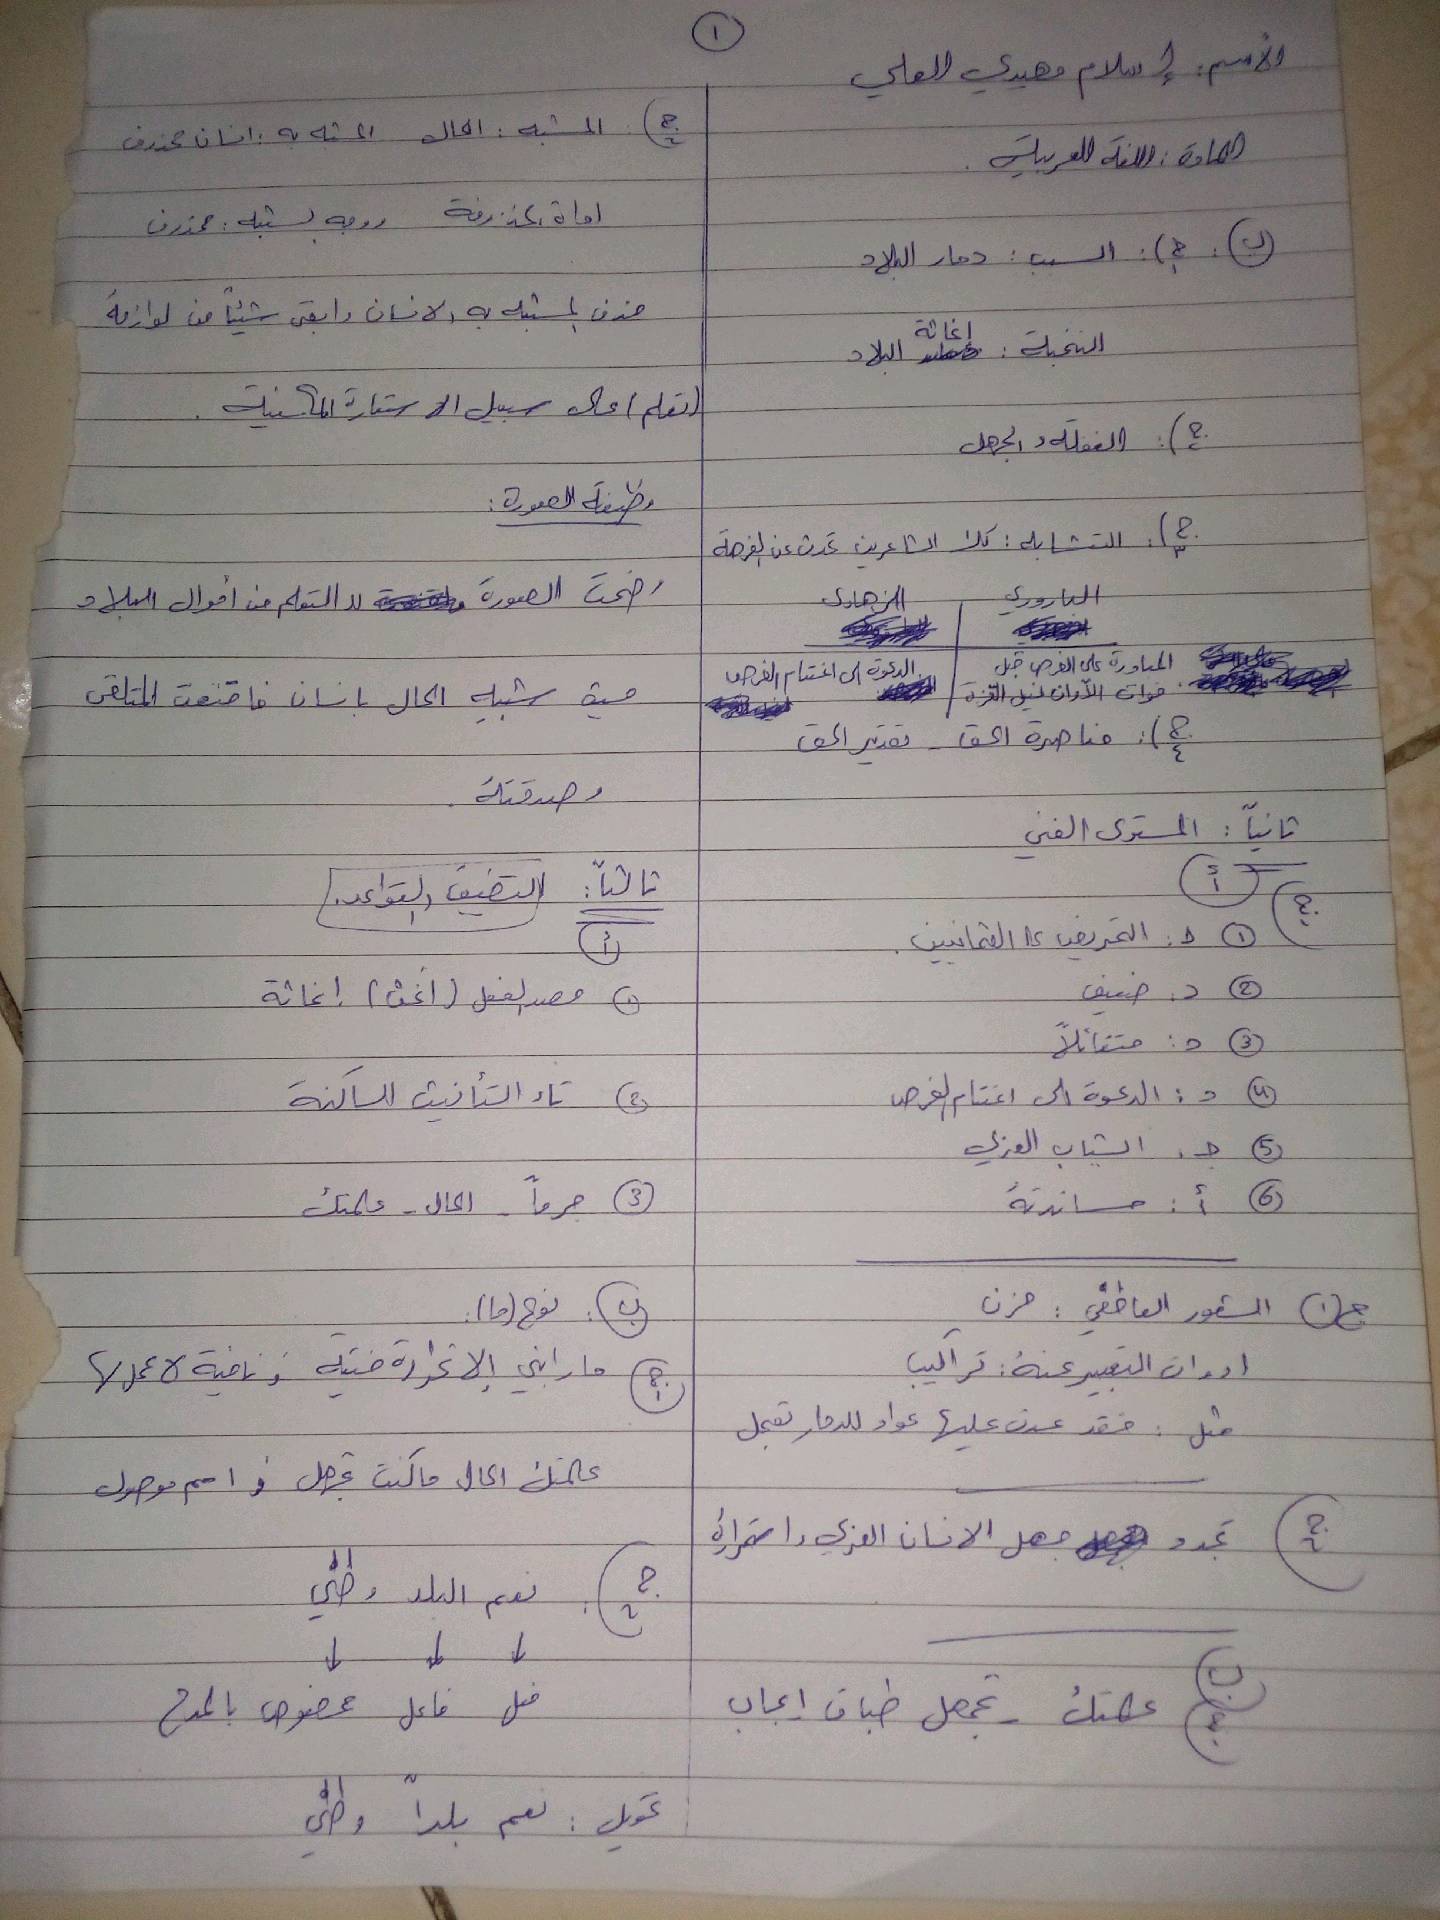 ١
الأسم: إسلام مهيدي العلي
المادة: اللغة العربية.
ب: ج١): السبب: دمار البلاد
النتيجة: إغاثة البلاد
ج٢): الغفلة والجهل
ج٣): التشابه: كلا الشاعرين تحدث عن الفرصة
البارودي الزهاوي
المبادرة على الفرص قبل الدعوة الى اغتنام الفرص
فوات الأوان لنيل
ج٤): مناصرة الحق - تقدير الحق
ثانياً: المستوى الفني
أ
ج
① د: التحريض على العثمانيين.
② د. ضعيف
③ د: متفائلاً
④ د: الدعوة الى اغتنام الفرص
⑤ ج. الشباب العربي
⑥ أ: مساندته
ج① الشعور العاطفي: حزن
ادوات التعبير عنه: تراكيب
مثل: فقد عدت عليها عواد للدمار تعجل
ج٢ تجدد جهل الانسان العربي واستمراره
ب
ج علمتك - تجهل طباق إيجاب
ج٢): المشبه: الحال المشبه به: انسان محذوف
اداة محذوفة ووجه لشبه: محذوف
حذف المشبه به الانسان وابقى شيئاً من لوازمه
(تعلم) على سبيل الاستعارة المكنية.
وظيفة الصورة:
وضحت الصورة التعلم من أحوال البلاد
حية شبه الحال بانسان فاقتنعت المتلقي
وصدقته.
ثالثاً: التطبيق والقواعد.
أ
① مصدر لفعل (أغث) إغاثة
② تاء التأنيث الساكنة
③ جرماً - الحال - علمتك
ب: نوع (ما):
ج١ ما رابني إلا غرارة فتية : نافية لا عمل لها
علمتك الحال ما كنت تجهل : اسم موصول
ج٢: نعم البلد وطني
↓ ↓ ↓
فعل فاعل مخصوص بالمدح
تحويل: نعم بلداً وطني